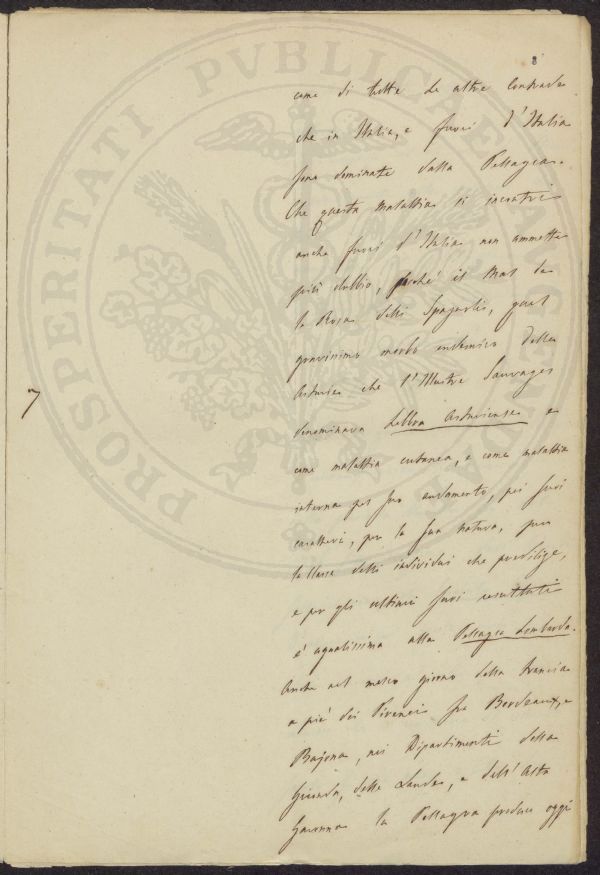 8
come di tutte le altre Contrade
che in Italia, e fuori d'Italia
sono dominate dalla Pellagra.
Che questa malattia si incontri
anche fuori d'Italia non ammette
più dubbio, perché il Mal de
la Rosa delli Spagnoli, quel
gravissimo morbo endemico delle
Asturie che l'Illustre Sauvages
denominava Lebbra Asturiense e
come malattia cutanea, e come malattia
interna pel suo andamento, pei suoi
caratteri, per la sua natura, per
la Classe delli individui che predilige,
e per gli ultimi suoi resultati
è ugualissima alla Pellagra Lombarda.
Anche nel mezzo giorno della Francia
a piè dei Pirenei fra Bordeaux, e
Bajona, nei Dipartimenti della
Gironda, delle Lande, e dell'Alta
Garonna la Pellagra produce oggi
7
PROSPERITATI PVBLICAE